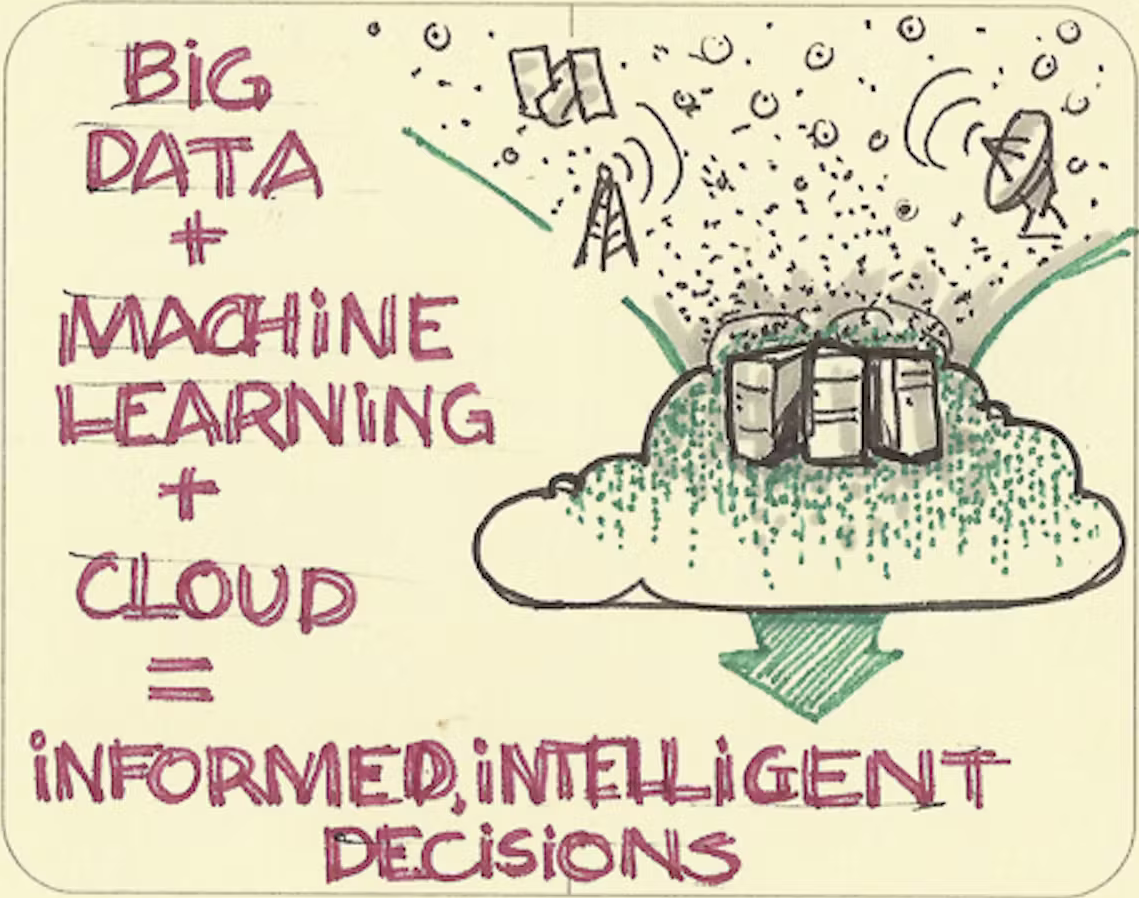 BiG
DATA
+
MACHiNE
LEARNiNG
+
CLOUD
=
iNFORMED, iNTELLiGENT
DECiSiONS